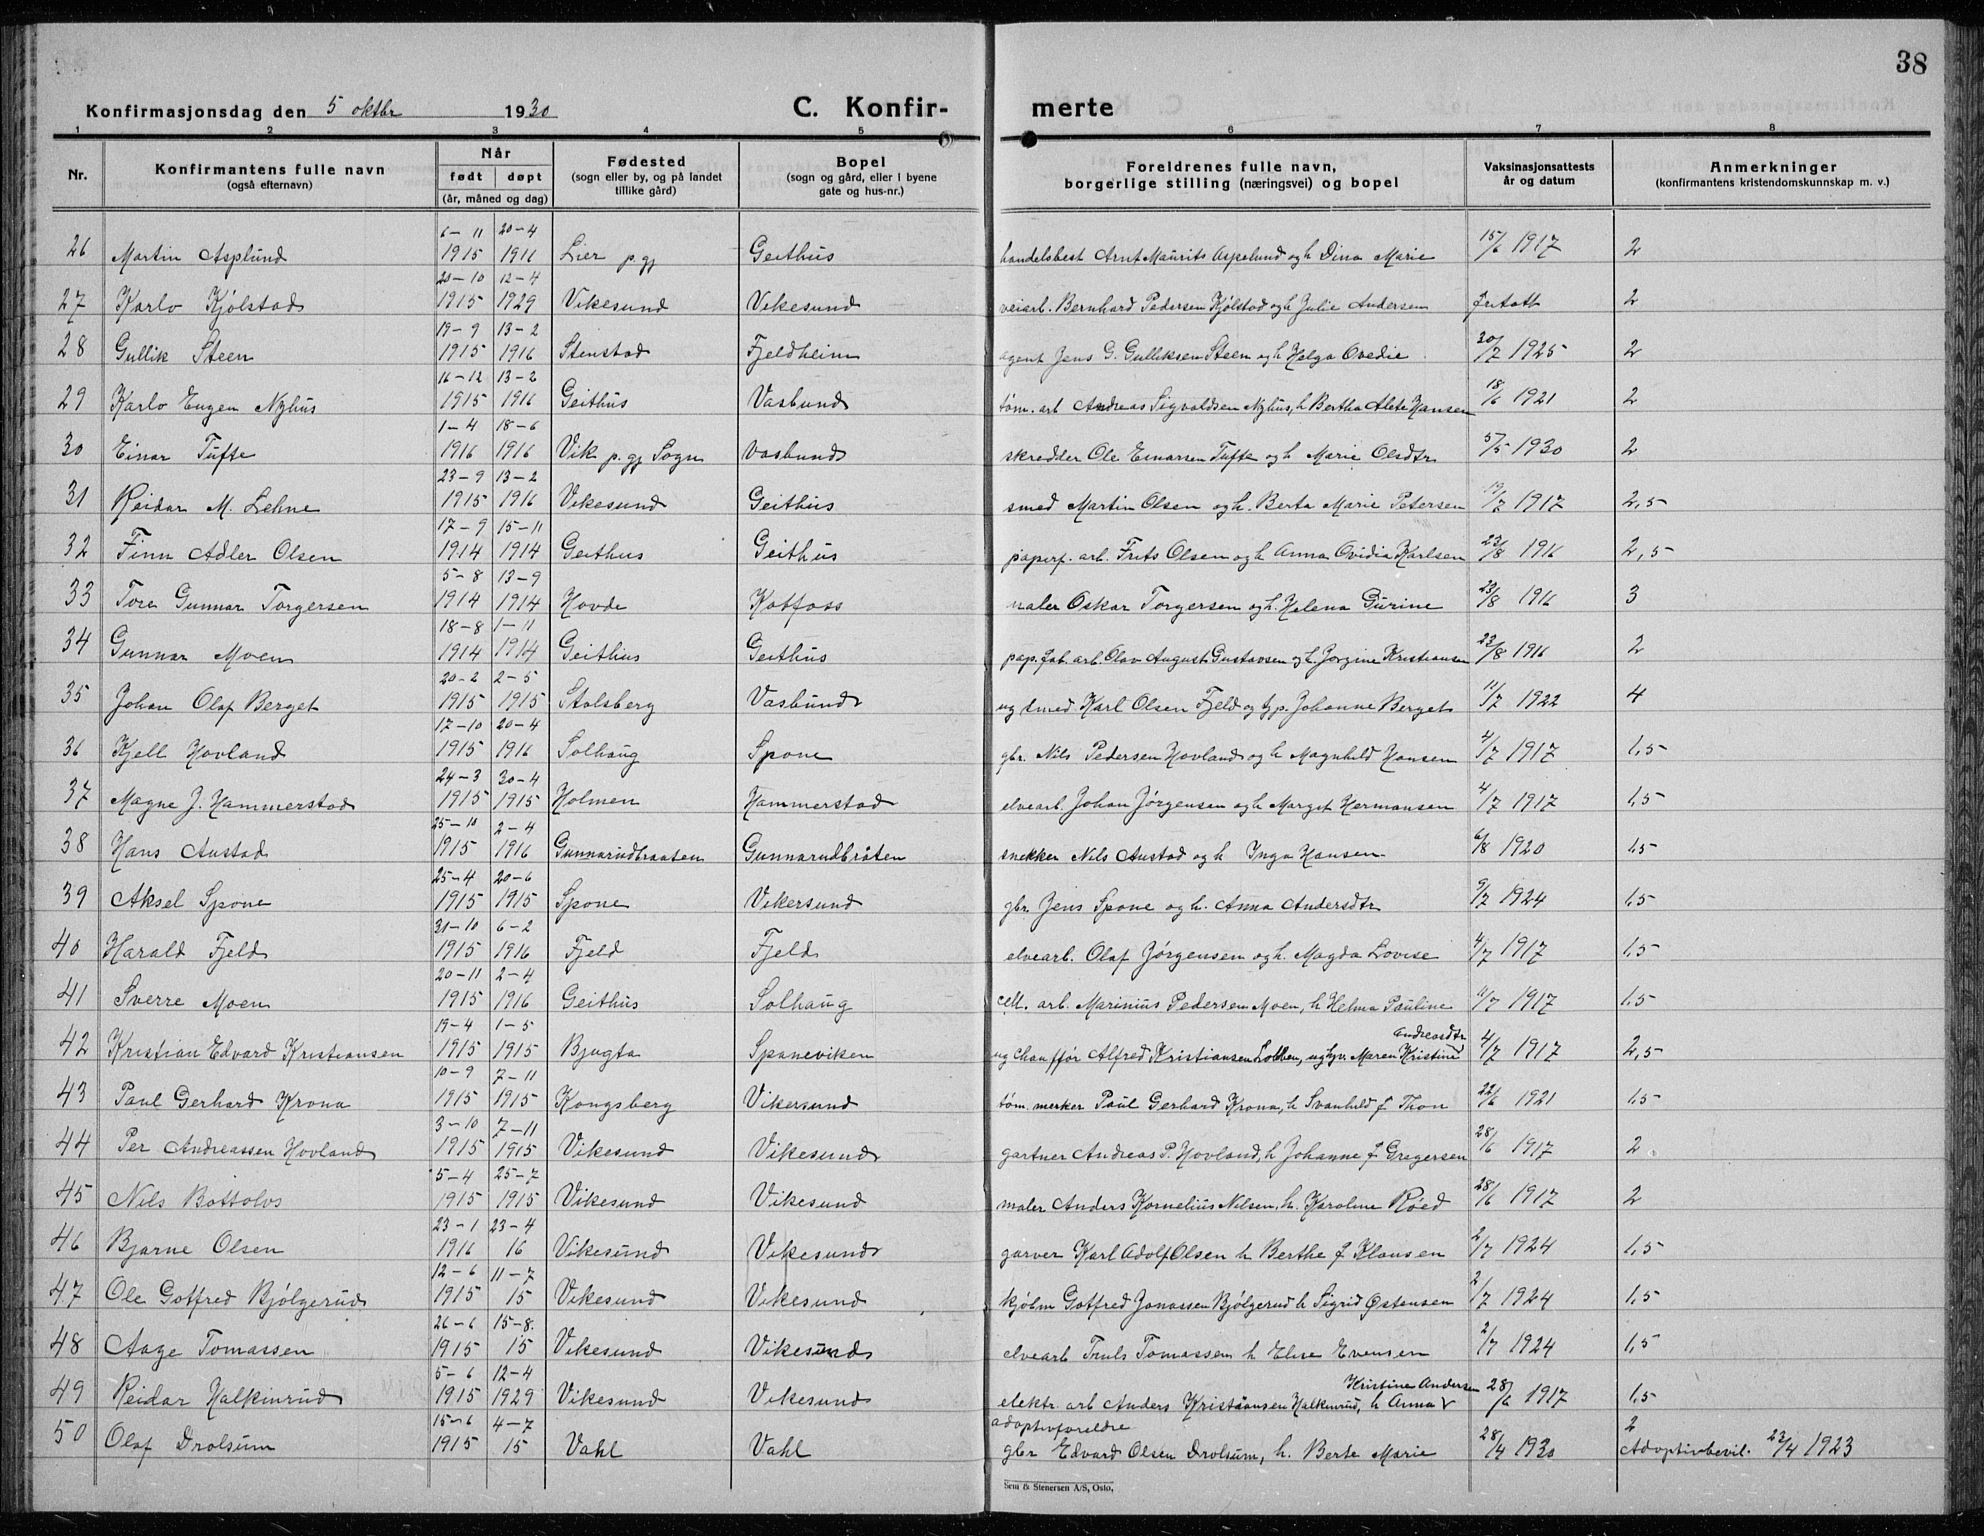 38
Konfirmasjonsdag den 5 oktbr 1930 C. Konfir- merte
1 2 3 4 5 6 7 8
Nr. Konfirmantens fulle navn (også efternavn) Når født døpt (år, måned og dag) Fødested (sogn eller by, og på landet tillike gård) Bopel (sogn og gård, eller i byene gate og hus-nr.) Foreldrenes fulle navn, borgerlige stilling (næringsvei) og bopel Vaksinasjonsattests år og datum Anmerkninger (konfirmantens kristendomskunnskap m. v.)
26 Martin Asplund 6-11 1915 20-4 1916 Lier p.gj Geithus handelsbest Arnt Maurits Aspelund og h Dina Marie 15/6 1917 2
27 Karlo Kjølstad 20-10 1915 12-4 1929 Vikesund Vikesund veiarb. Bernhard Pedersen Kjølstad og h Julie Andersen fritatt 2
28 Gullik Steen 19-9 1915 13-2 1916 Stenstad Fjeldheim agent Jens G. Gulliksen Steen og h Helga Ovedie 20/7 1925 2
29 Karlo Eugen Nyhus 16-12 1915 13-2 1916 Geithus Vasbund tøm. arb Andreas Sigvaldsen Nyhus, h Bertha Alete Hansen 18/6 1921 2
30 Einar Tufte 1-4 1916 18-6 1916 Vik p.gj Sogn Vasbund skredder Ole Einarsen Tufte og h Marie Olsdtr 5/5 1930 2
31 Reidar M. Lehne 23-9 1915 13-2 1916 Vikesund Geithus smed Martin Olsen og h. Berta Marie Petersen 19/7 1917 2,5
32 Finn Adler Olsen 17-9 1914 15-11 1914 Geithus Geithus paperf. arb. Frits Olsen og h Anna Ovidia Karlsen 23/8 1916 2,5
33 Tore Gunnar Torgersen 5-8 1914 13-9 1914 Hovde Kotfoss maler Oskar Torgersen og h. Helena Gurine 23/8 1916 3
34 Gunnar Moen 18-8 1914 1-11 1914 Geithus Geithus pap. fab. arb. Olav August Gustavsen og h. Jorgine Kristiansen 23/8 1916 2
35 Johan Olaf Berget 20-2 1915 2-5 1915 Stolsberg Vasbund ug smed Karl Olsen Fjeld og hp. Johanne Berget 11/7 1922 4
36 Kjell Hovland 17-10 1915 20-4 1916 Solhaug Spone gbr. Nils Pedersen Hovland og h Magnhild Hansen 4/7 1917 1,5
37 Magne J. Hammerstad 24-3 1915 30-4 1915 Holmen Hammerstad elvearb. Johan Jørgensen og h Marget Hermansen 4/7 1917 1,5
38 Hans Austad 25-10 1915 2-4 1916 Gunnarudbraaten Gunnarudbråten snekker Nils Austad og h Inga Hansen 6/8 1920 1,5
39 Aksel Spone 25-4 1915 20-6 1915 Spone Vikersund gbr. Jens Spone og h. Anna Andersdtr 9/7 1924 1,5
40 Harald Fjeld 31-10 1915 6-2 1916 Fjeld Fjeld elvearb. Olaf Jørgensen og h. Magda Lovise 4/7 1917 1,5
41 Sverre Moen 20-11 1915 2-4 1916 Geithus Solhaug cell. arb. Marinius Pedersen Moen, h Helma Pauline 11/7 1917 1,5
42 Kristian Edvard Kristiansen 19-4 1915 1-5 1915 Bjugta Sponeviken ug chauffør Alfred Kristiansen Lobben, ug hp. Maren Kristine Andreasdtr 4/7 1917 2,5
43 Paul Gerhard Krona 10-9 1915 7-11 1915 Kongsberg Vikersund tøm. merker Paul Gerhard Krona, h Svanhild f Thon 22/6 1921 1,5
44 Per Andreassen Hovland 3-10 1915 7-11 1915 Vikesund Vikesund gartner Andreas P. Hovland, h Johanne f Gregersen 28/6 1917 2
45 Nils Bottolvs 5-4 1915 25-7 1915 Vikesund Vikesund maler Anders Kornelius Nilsen, h. Karoline Røed 28/6 1917 2
46 Bjarne Olsen 23-1 1916 23-4 16 Vikesund Vikesund garver Karl Adolf Olsen h Berthe f Klausen 2/7 1924 1,5
47 Ole Gotfred Bjølgerud 12-6 1915 11-7 15 Vikesund Vikesund kjølm Gotfred Jonassen Bjølgerud h Sigrid Østensen 2/7 1924 1,5
48 Aage Tomassen 26-6 1915 15-8. 15 Vikesund Vikesund elvearb Truls Tomassen h Elise Evensen 2/7 1924 1,5
49 Reidar Halkinrud 5-6 1915 12-4 1929 Vikesund Vikesund elektr. arb Anders Kristiansen Halkinrud, h Anna Kristine Andersen 28/6 1917 1,5
50 Olaf Drolsum 15-6 1915 4-7 15 Vahl Vahl adoptivforeldre gbr Edvard Olsen Drolsum, h. Berte Marie 28/4 1930 2 Adoptivbevil. 23/4 1923
Sem & Stenersen A/S, Oslo.